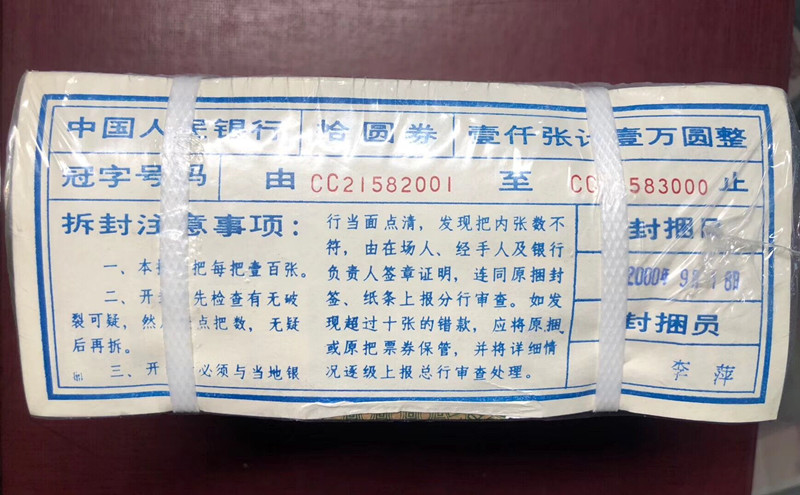 中国人民银行 拾圆券 壹仟张计壹万圆整
冠字号码 由 CC21582001 至 CC 583000 止
拆封注意事项：
一、本 把每把壹百张。
二、开 先检查有无破
裂可疑，然 点把数，无疑
后再拆。
三、开 必须与当地银
行当面点清，发现把内张数不
符，由在场人、经手人及银行
负责人签章证明，连同原捆封
签、纸条上报分行审查。如发
现超过十张的错款，应将原捆
或原把票券保管，并将详细情
况逐级上报总行审查处理。
封捆
2000年9月18日
封捆员
李萍